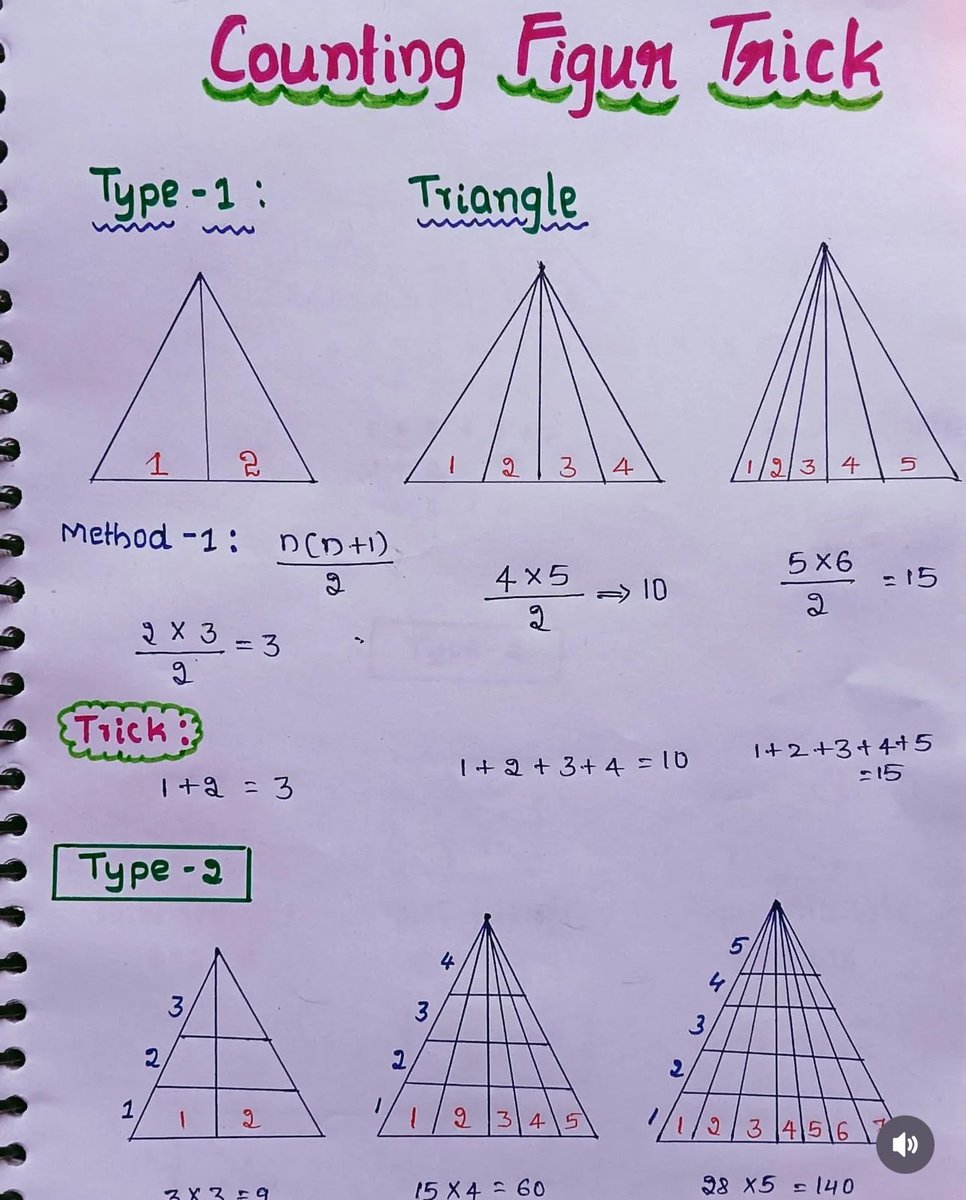 Counting Figur Trick
Type-1: Triangle
1 2
1 2 3 4
1 2 3 4 5
Method-1: n(n+1)/2
2 × 3/2 = 3
4 × 5/2 ⇒ 10
5 × 6/2 = 15
Trick:
1+2 = 3
1+2+3+4 = 10
1+2+3+4+5
=15
Type-2
3
2
1
1 2
4
3
2
1
1 2 3 4 5
5
4
3
2
1
1 2 3 4 5 6 7
3×3=9
15×4 = 60
28×5 = 140